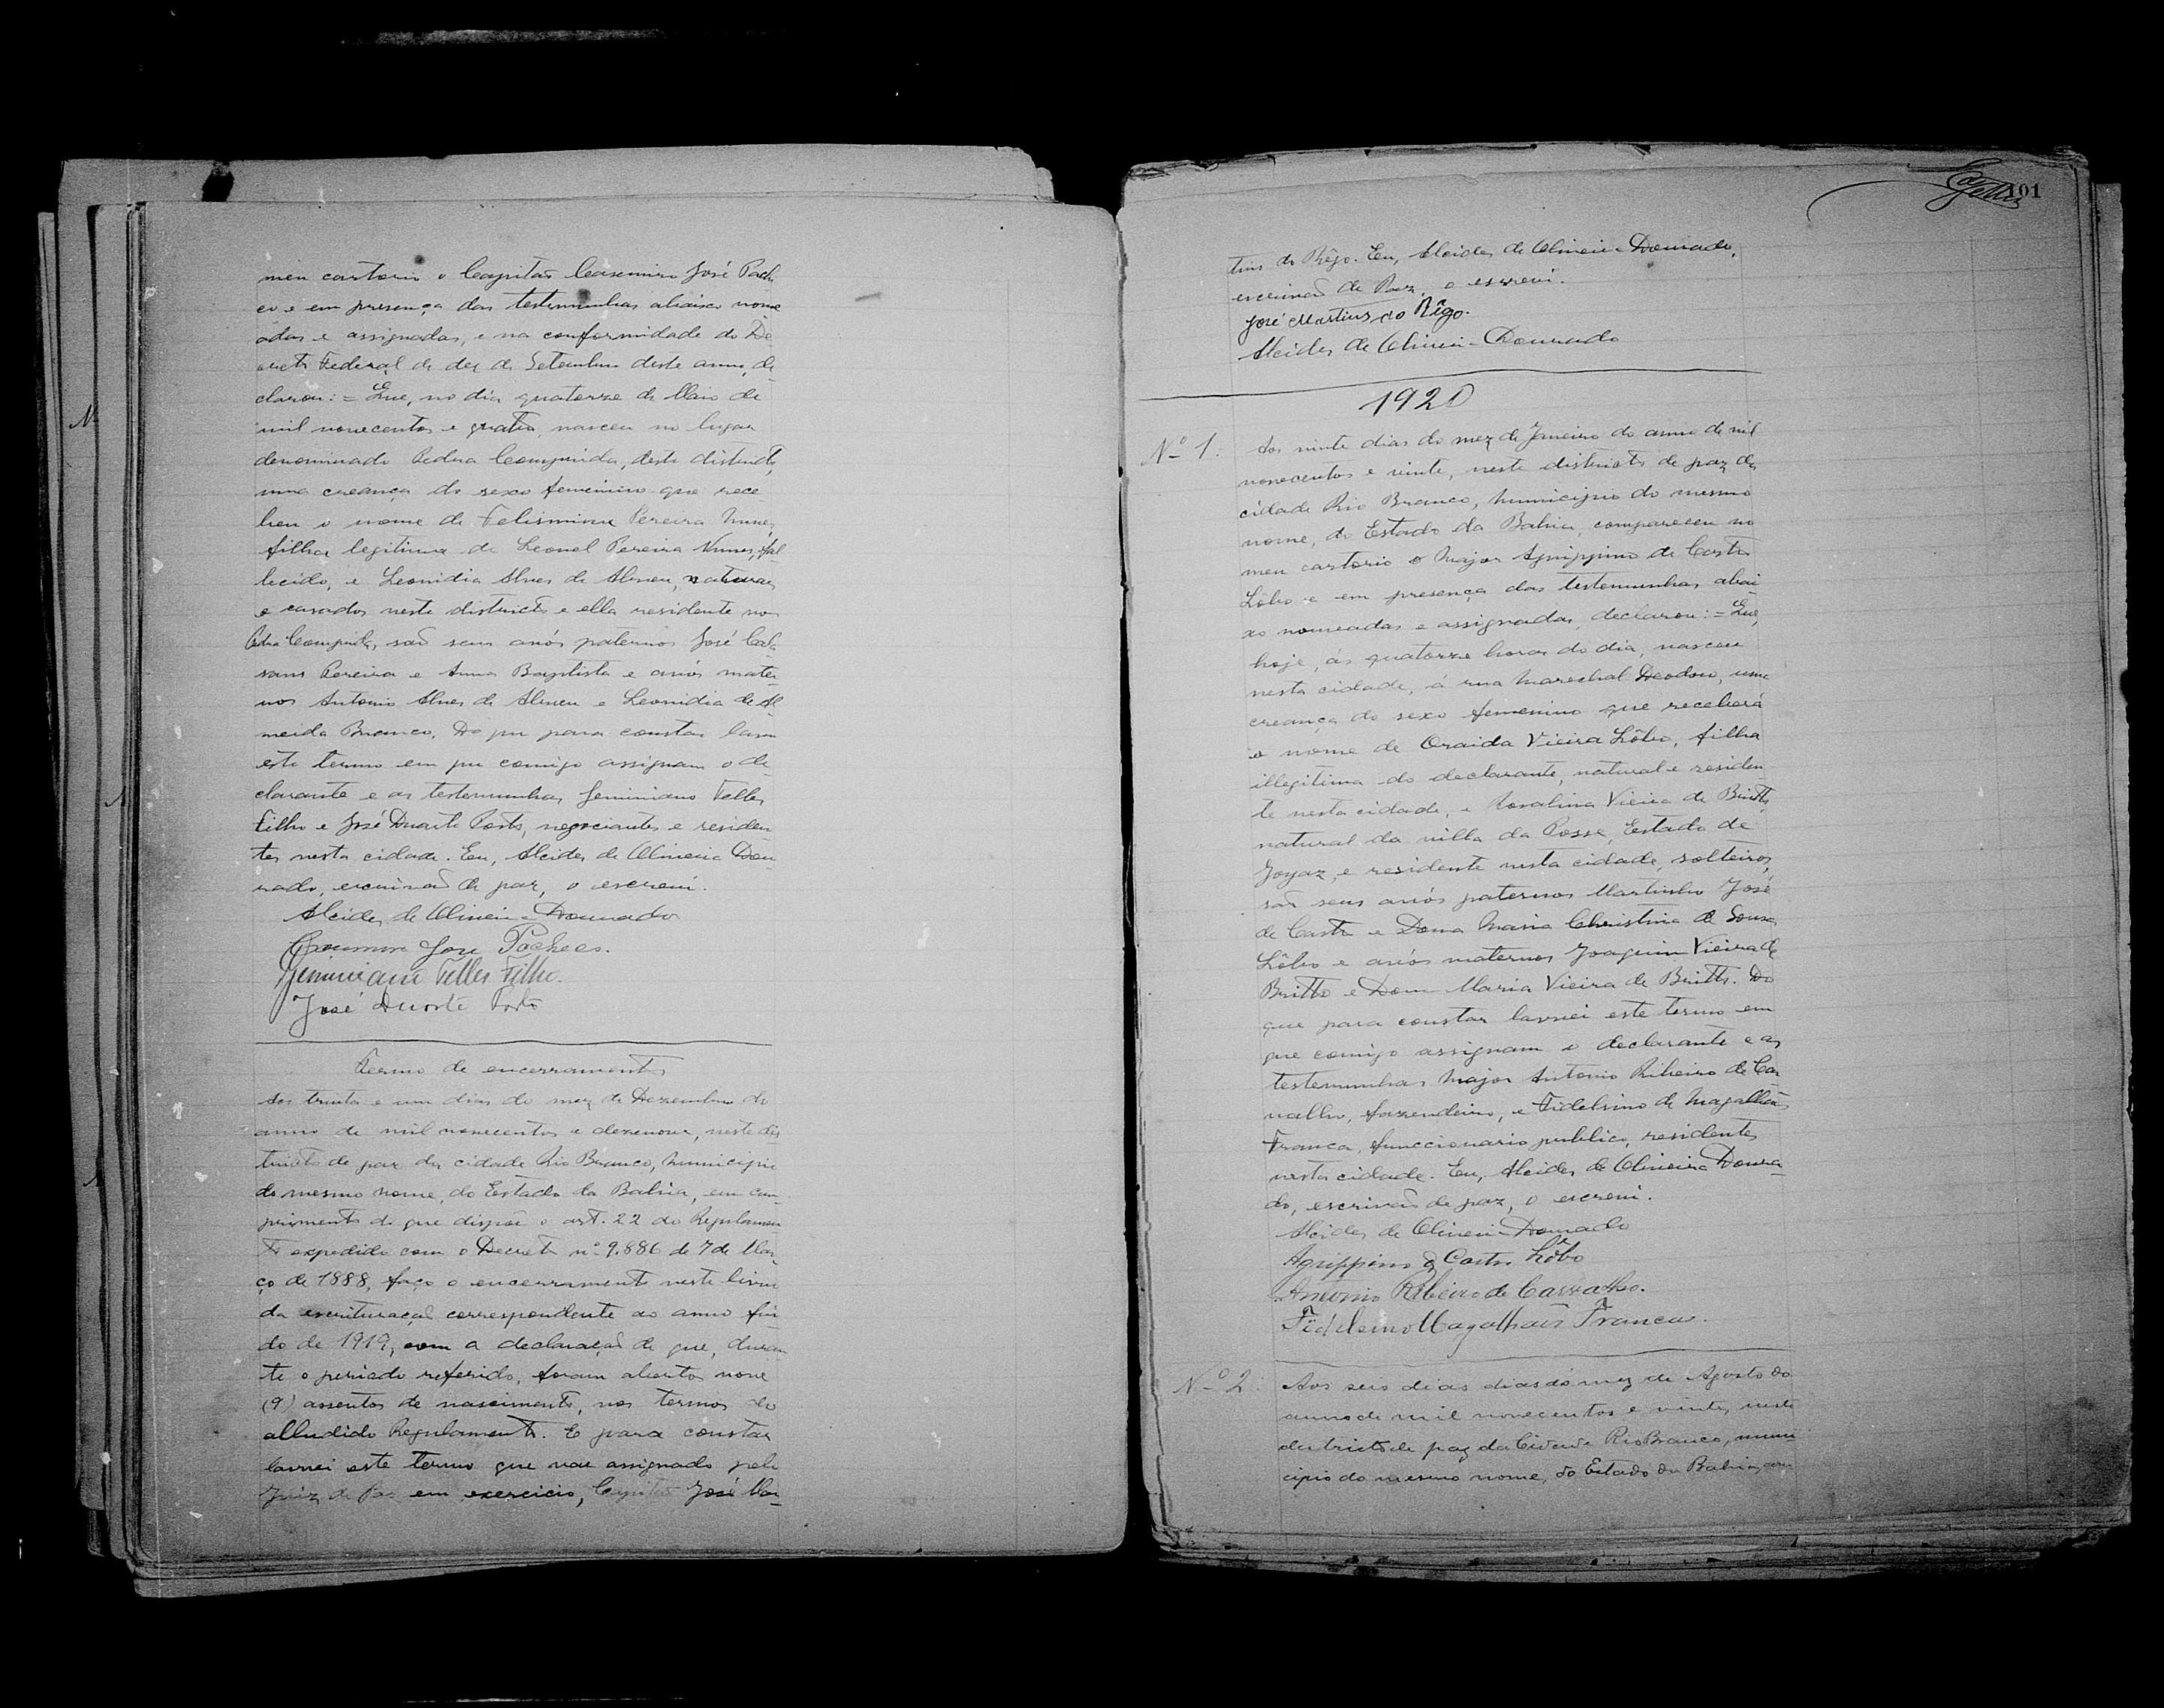 meu cartorio o Capitão Casemiro José Pache
co e em presença das testemunhas abaixo nome
adas e assignadas, e na conformidade do De
creto Federal de dez de Setembro deste anno, de
clarou: = Que, no dia quatorze de Maio de
mil novecentos e quatro, nasceu no lugar
denominado Pedra Comprida, deste districto,
uma creança do sexo femenino que rece
beu o nome de Felismina Pereira Nunes,
filha legitima de Leonel Pereira Nunes, fal
lecido, e Leonidia Alves de Abreu, naturaes
e casados neste districto e ella residente no
Pedra Comprida, são seus avós paternos José Cala
sans Pereira e Anna Baptista e avós mater
nos Antonio Alves de Abreu e Leonidia de Al
meida Branco. Do que para constar lavro
este termo em que comigo assignam o de
clarante e as testemunhas Geminiano Telles
Filho e José Duarte Porto, negociantes e residen
tes nesta cidade. Eu, Alcides de Oliveira Dou
rado, escrivão de paz, o escrevi.
Alcides de Oliveira Dourado
Casemiro José Pacheco.
Geminiano Telles Filho.
José Duarte Porto
Termo de encerramento
Aos trinta e um dias do mez de Dezembro do
anno de mil novecentos e dezenove, neste dis
tricto de paz da cidade Rio Branco, municipio
do mesmo nome, do Estado da Bahia, em cum
primento do que dispõe o art. 22 do Regulamen
to expedido com o Decreto nº 9.886 de 7 de Mar
ço de 1888, faço o encerramento neste livro
da escrituração correspondente ao anno fin
do de 1919, com a declaração de que, duran
te o periodo referido, foram abertos nove
(9) assentos de nascimento, nos termos do
alludido Regulamento. E para constar
lavrei este termo que vae assignado pelo
Juiz de Paz em exercicio, Capitão José Mar-
101
tins do Rêgo. Eu, Alcides de Oliveira Dourado,
escrivão de Paz, o escrevi.
José Martins do Rêgo.
Alcides de Oliveira Dourado
1920
Nº 1.
Aos vinte dias do mez de Janeiro do anno de mil
novecentos e vinte, neste districto de paz da
cidade Rio Branco, municipio do mesmo
nome, do Estado da Bahia, compareceu no
meu cartorio o Major Agrippino de Castro
Lôbo e em presença das testemunhas abai
xo nomeadas e assignadas, declarou: = Que,
hoje, ás quatorze horas do dia, nasceu
nesta cidade, á rua Marechal Deodoro, uma
creança do sexo femenino que receberá
o nome de Oraida Vieira Lôbo, filha
illegitima do declarante, natural e residen
te nesta cidade, e Rosalina Vieira de Britto,
natural da villa da Posse, Estado de
Goyaz, e residente nesta cidade, solteiros,
são seus avós paternos Martinho José
de Castro e Dona Maria Christina de Sousa
Lôbo e avós maternos Joaquim Vieira de
Britto e Dona Maria Vieira de Britto. Do
que para constar lavrei este termo em
que comigo assignam o declarante e as
testemunhas Major Antonio Ribeiro de Car
valho, fazendeiro, e Fidelsino de Magalhães
Franca, funccionario publico, residentes
nesta cidade. Eu, Alcides de Oliveira Doura
do, escrivão de paz, o escrevi.
Alcides de Oliveira Dourado
Agrippino de Castro Lôbo
Antonio Ribeiro de Carvalho.
Fidelsino Magalhães Franca.
Nº 2.
Aos seis dias dias do mez de Agosto do
anno de mil novecentos e vinte, neste
districto de paz da Cidade Rio Branco, muni
cipio do mesmo nome, do Estado da Bahia, em